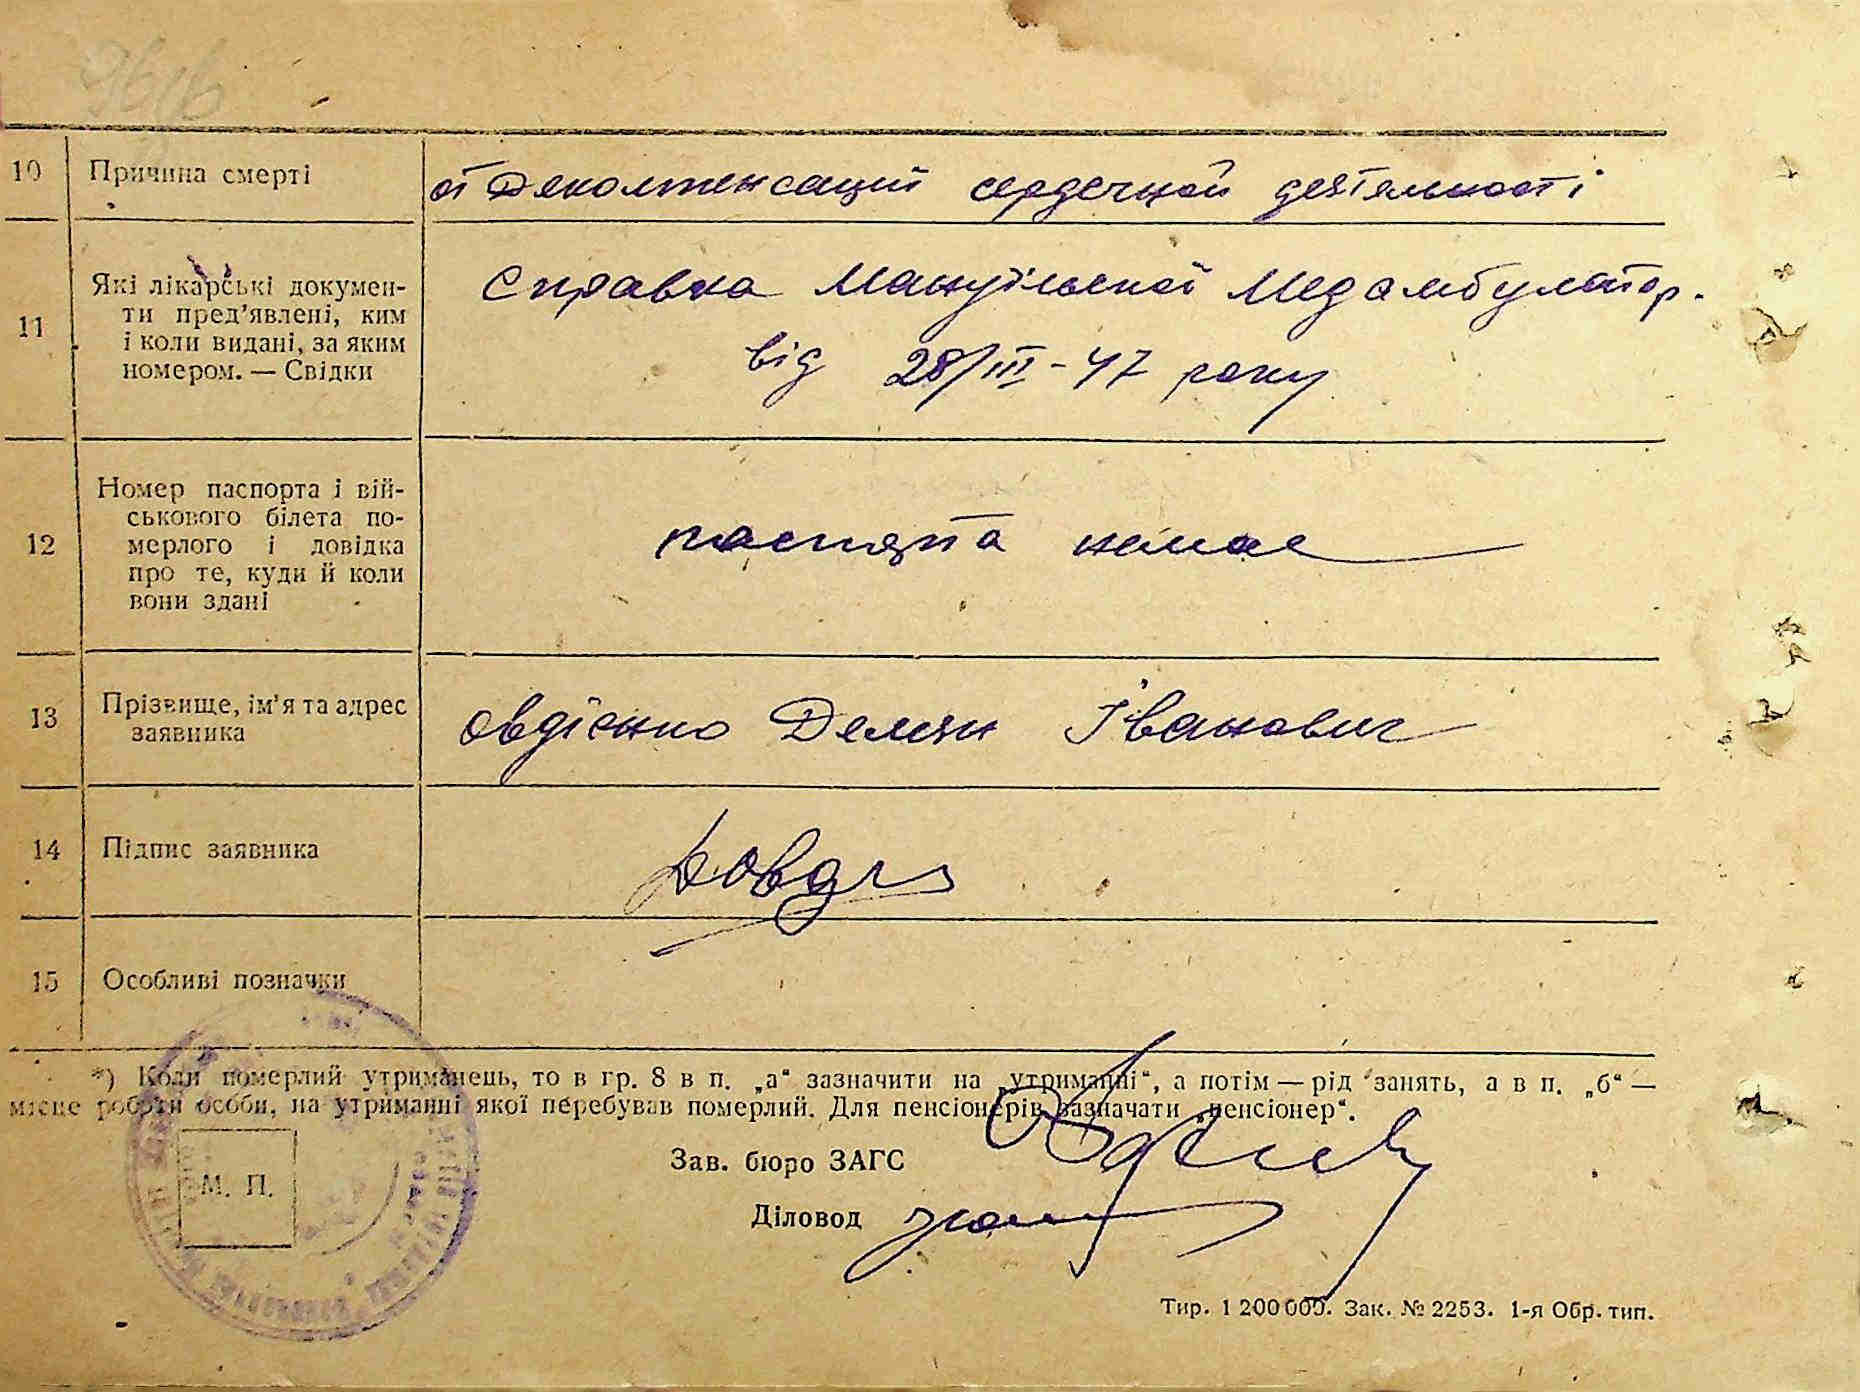 10 Причина смерті от Декомпенсаций сердечной деятельності
11 Які лікарські докумен-
ти пред'явлені, ким
і коли видані, за яким
номером. — Свідки
Справка Мануїльської Медамбулатор.
від 28/III-47 року
12 Номер паспорта і вій-
ськового білета по-
мерлого і довідка
про те, куди й коли
вони здані
паспорта немає
13 Прізвище, ім'я та адрес
заявника
Овдієнко Демян Іванович
14 Підпис заявника
15 Особливі позначки
*) Коли померлий утриманець, то в гр. 8 в п. „а“ зазначити на „утриманні“, а потім — рід занять, а в п. „б“ —
місце роботи особи, на утриманні якої перебував померлий. Для пенсіонерів зазначати „пенсіонер“.
М. П.
Зав. бюро ЗАГС
Діловод
Тир. 1 200 000. Зак. № 2253. 1-я Обр. тип.